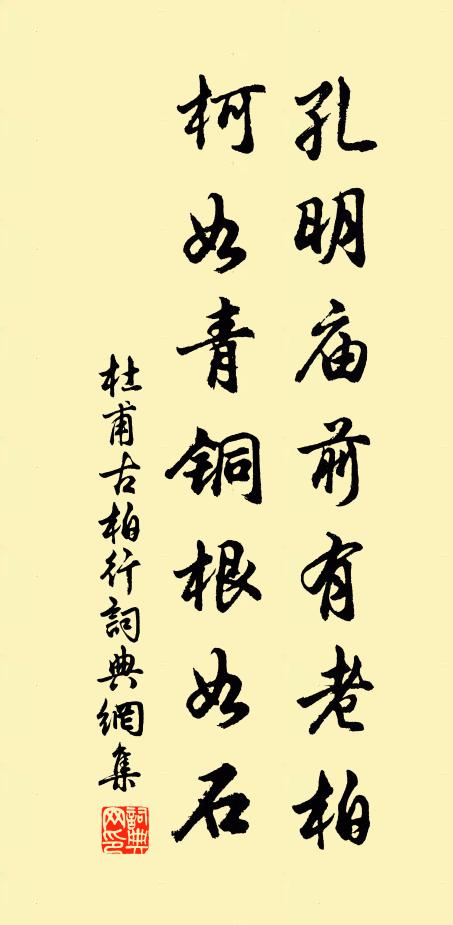 孔明庙前有老柏
柯如青铜根如石
杜甫古柏行詞典網集
詞典
网印